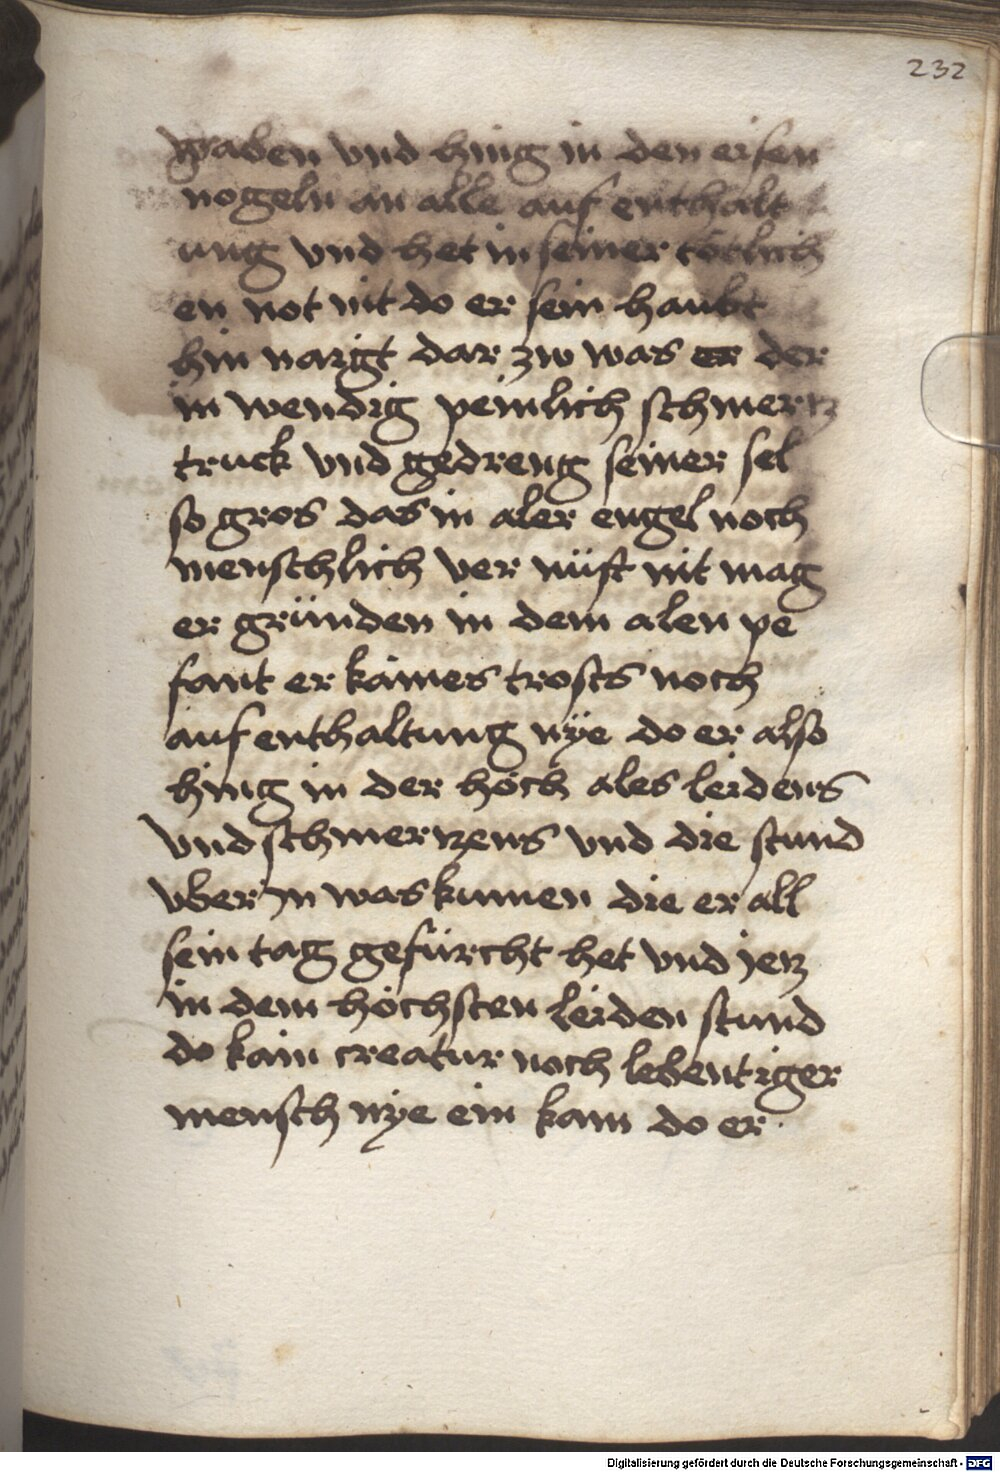 232
graben vnd hing in den eisen
nogeln an alle auf enthalt
ung vnd het in seiner tötlich
en not nit do er sein haubt
hin naigt dar zw was er der
in wendig peinlich schmertz
truck vnd gedreng seiner sel
so gros das in aler engel noch
menschlich ver nüft nit mag
er gründen in dem alen pe
fant er kaines trosts noch
aufenthaltung nÿe do er also
hing in der höch ales leidens
vnd schmertzens vnd die stund
vber jn was kumen die er all
sein tag gefürcht het vnd jetz
in dem höchsten leiden stund
do kain creatur noch lebentiger
mensch nÿe ein kam do er
Digitalisierung gefördert durch die Deutsche Forschungsgemeinschaft - DFG